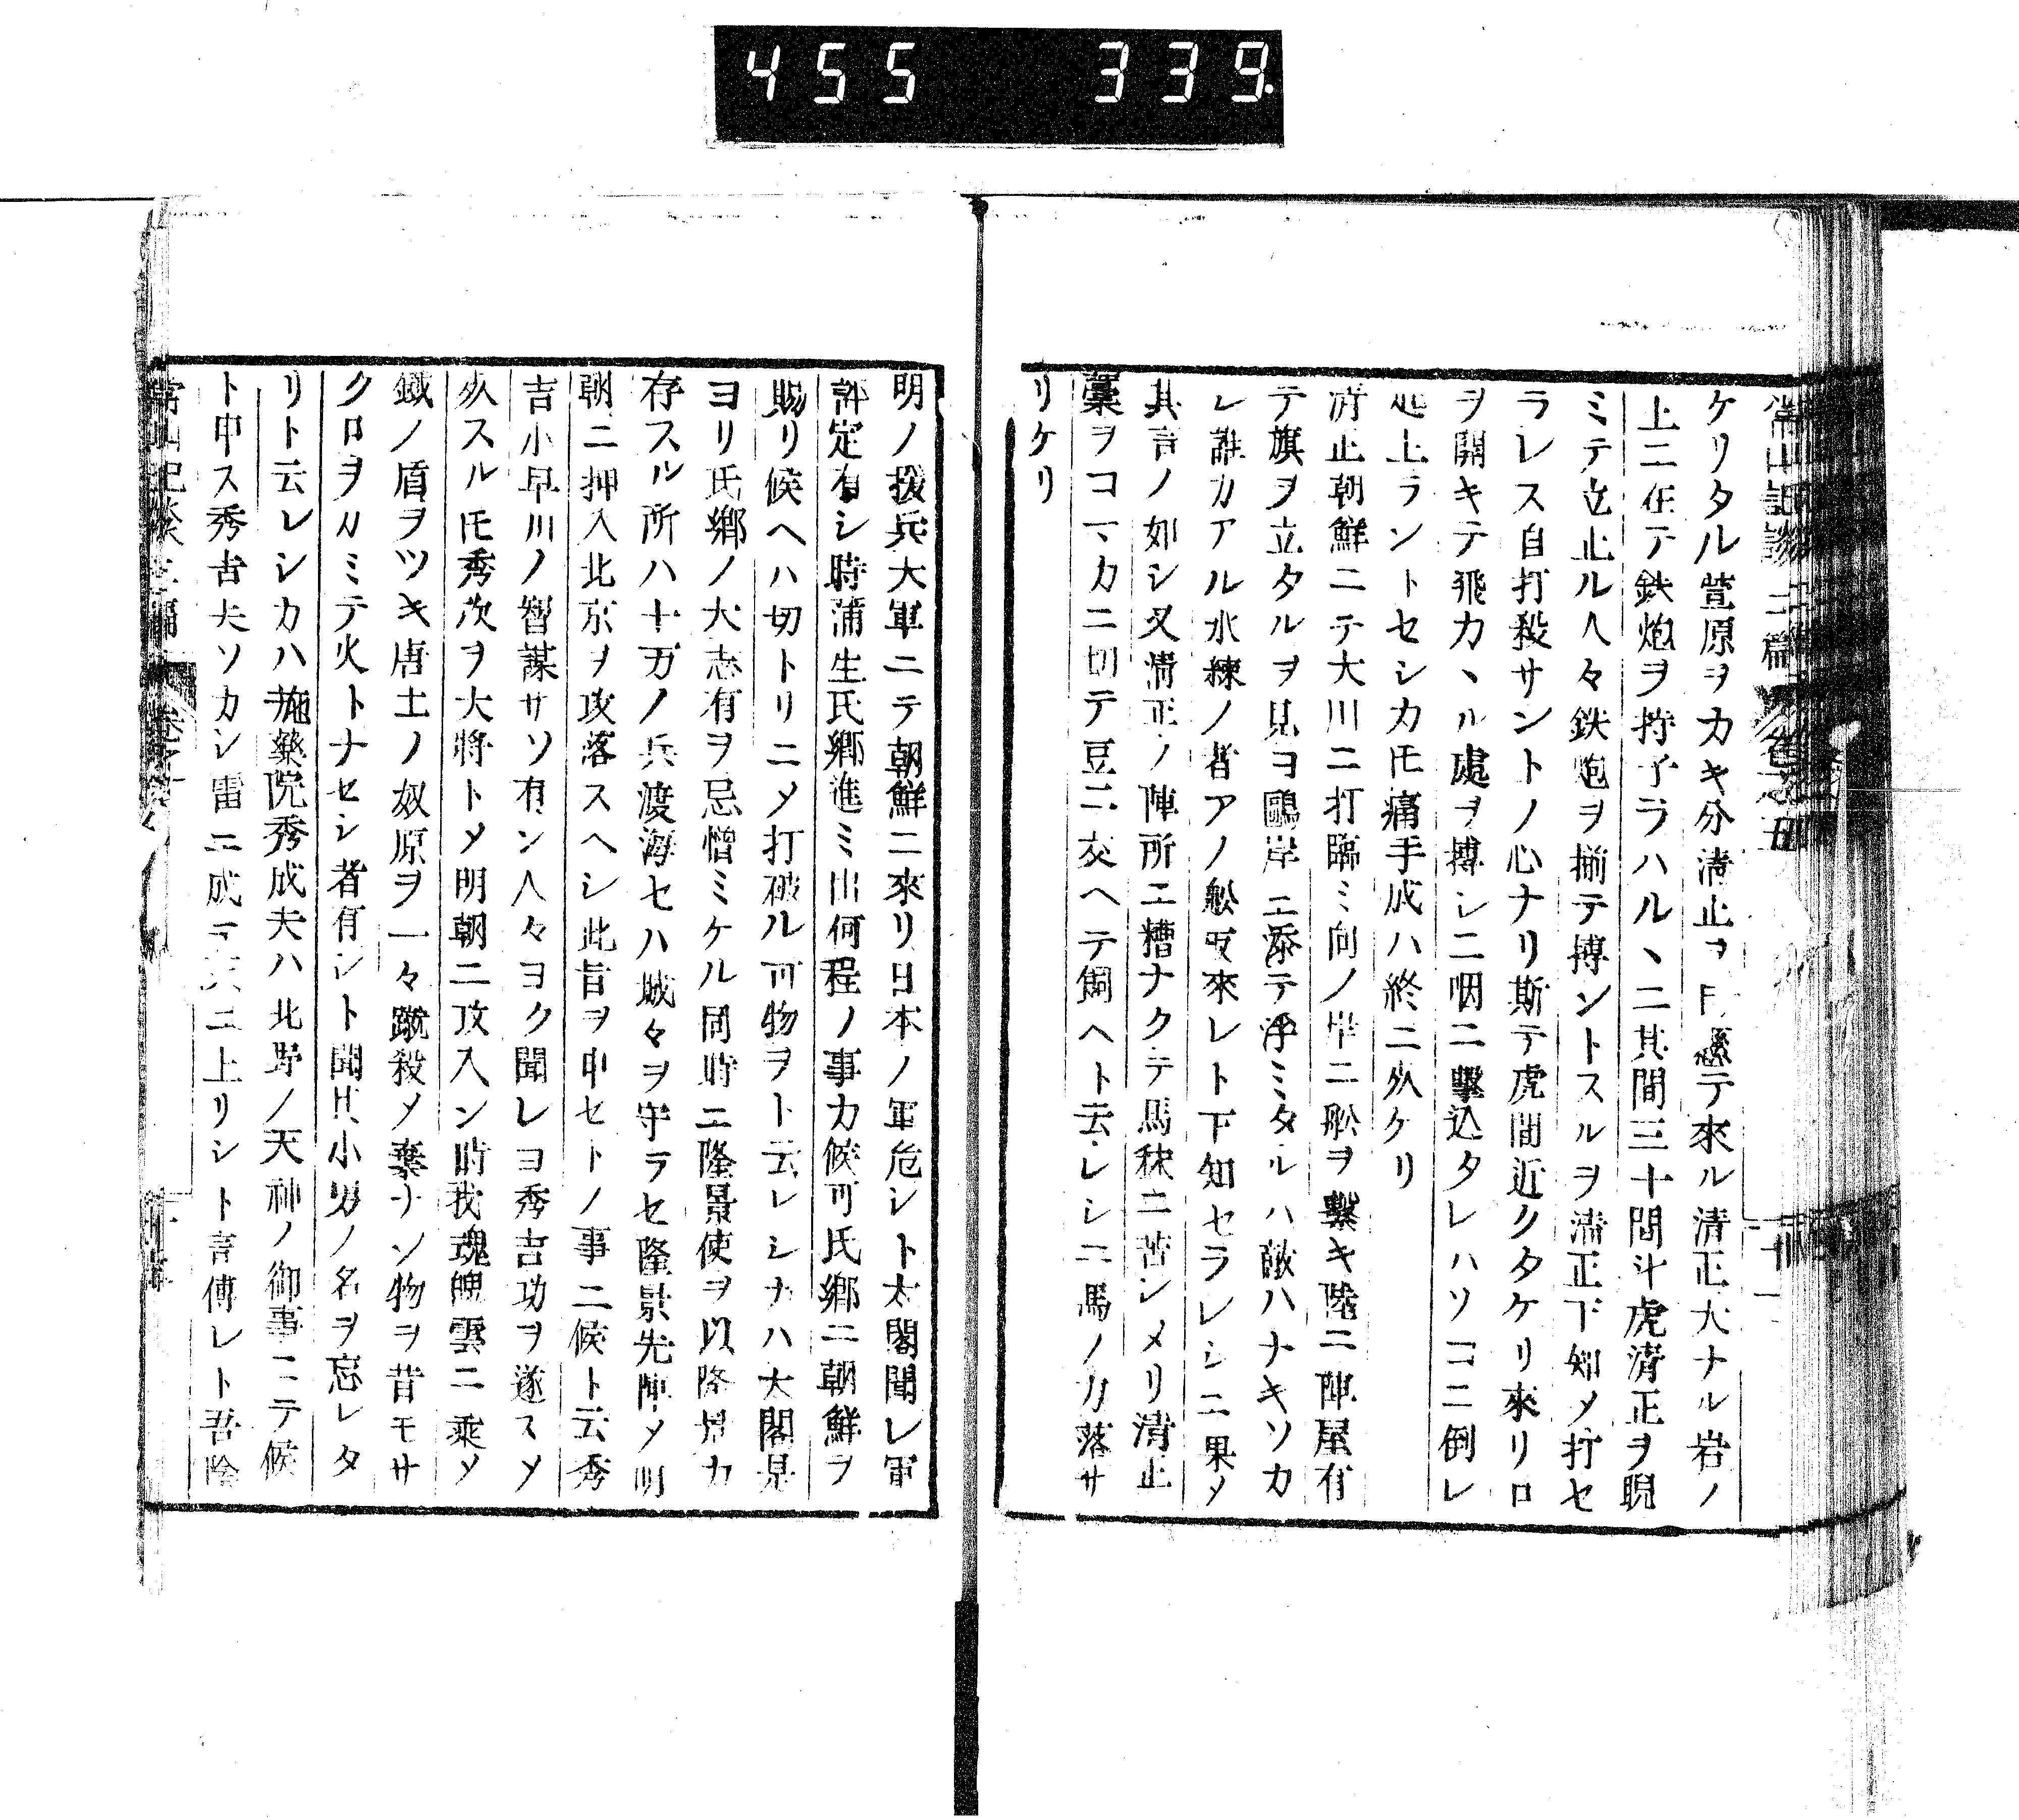 455 339.
常山記談 二篇 卷之五 二十一
ケリタル萱原ヲカキ分清正ヲ 懸テ來ル清正大ナル岩ノ
上ニ在テ鉄炮ヲ持子ラハル丶ニ其間三十間斗虎清正ヲ睨
ミテ立止ル人々鉄炮ヲ揃テ搏ントスルヲ清正下知メ打セ
ラレス自打殺サントノ心ナリ斯テ虎間近クタケリ來リロ
ヲ開キテ飛カ丶ル處ヲ搏シニ咽ニ擊込タレハソコニ倒レ
起上ラントセシカ𪜈痛手成ハ終ニ死ケリ
清正朝鮮ニテ大川ニ打臨ミ向ノ岸ニ舩ヲ繋キ陸ニ陣屋有
テ旗ヲ立タルヲ見ヨ鷗岸ニ添テ浮ミタルハ敵ハナキソカ
レ誰カアル水練ノ者アノ舩取來レト下知セラレシニ果メ
其言ノ如シ又清正ノ陣所エ糟ナクテ馬秣ニ苦シメリ清正
藁ヲコマカニ切テ豆ニ交ヘテ飼ヘト云レシニ馬ノ力落サ
リケリ
明ノ援兵大軍ニテ朝鮮ニ來リ日本ノ軍危シト太閤聞レ軍
評定有シ時蒲生氏郷進ミ出何程ノ事カ候可氏郷ニ朝鮮ヲ
賜リ候ヘハ切トリニメ打破ル可物ヲト云レシナハ大閤是
ヨリ氏郷ノ大志有ヲ忌憎ミケル同時ニ隆景使ヲ以隆景カ
存スル所ハ十万ノ兵渡海セハ城々ヲ守ラセ隆景先陣メ明
朝ニ押入北京ヲ攻落スヘシ此旨ヲ申セトノ事ニ候ト云秀
吉小早川ノ智謀サソ有ン人々ヨク聞レヨ秀吉功ヲ遂スメ
死スル𪜈秀次ヲ大將トメ明朝ニ攻入ン時我魂魄雲ニ乘メ
鐵ノ盾ヲツキ唐土ノ奴原ヲ一々蹴殺メ棄ナン物ヲ昔モサ
クロヲカミテ火トナセシ者有シト聞其小男ノ名ヲ忘レタ
リト云レシカハ施藥院秀成夫ハ北野ノ天神ノ御事ニテ候
ト申ス秀吉夫ソカシ雷ニ成テ天ニ上リシト言傳レト吾陰
常山記談 二編